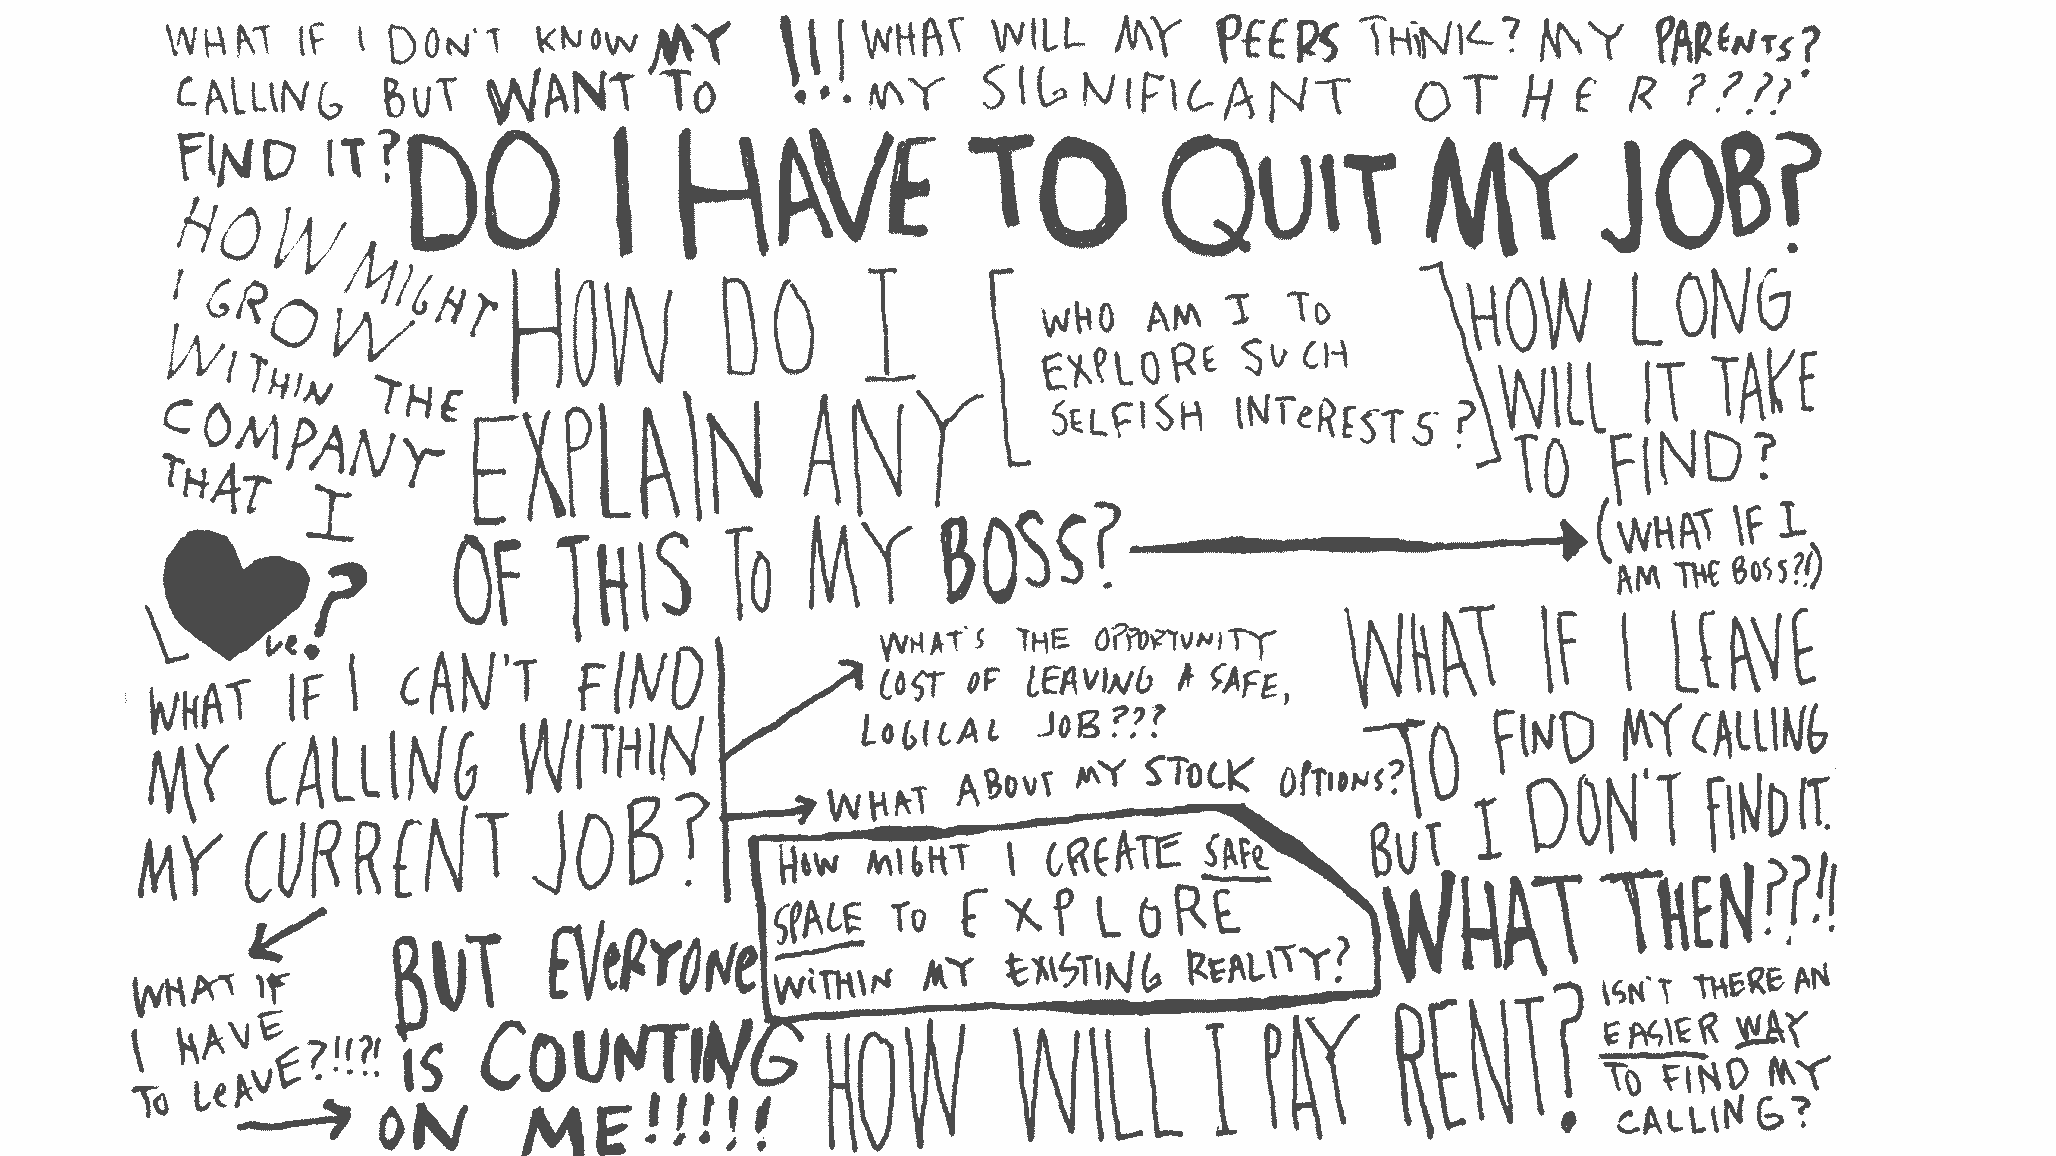 WHAT IF I DON'T KNOW MY
CALLING BUT WANT TO
FIND IT?
!!! WHAT WILL MY PEERS THINK? MY PARENTS?
MY SIGNIFICANT OTHER????
DO I HAVE TO QUIT MY JOB?
HOW MIGHT
I GROW
WITHIN THE
COMPANY
THAT I
Love?
HOW DO I
EXPLAIN ANY
OF THIS TO MY BOSS?
WHO AM I TO
EXPLORE SUCH
SELFISH INTeRESTS?
HOW LONG
WILL IT TAKE
TO FIND?
(WHAT IF I
AM THE BOSS?!)
WHAT IF I CAN'T FIND
MY CALLING WITHIN
MY CURRENT JOB?
WHAT'S THE OPPORTUNITY
COST OF LEAVING A SAFE,
LOGICAL JOB???
WHAT ABOUT MY STOCK OPTIONS?
WHAT IF I LEAVE
TO FIND MY CALLING
BUT I DON'T FIND IT.
WHAT THEN??!!
HOW MIGHT I CREATE SAFe
SPACE TO EXPLORE
WiTHIN MY EXISTING REALITY?
WHAT IF
I HAVE
TO LeAVE?!!?!
BUT EVeRYONe
IS COUNTING
ON ME!!!!!
HOW WILL I PAY RENT?
ISN'T THERE AN
EASIER WAY
TO FIND MY
CALLING?